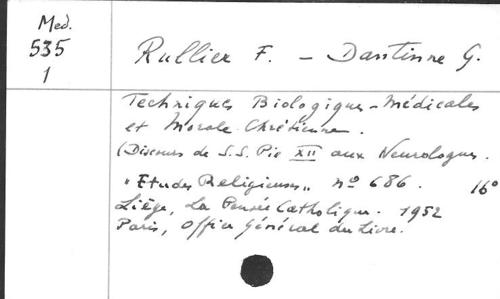 Med.
535
1
Rullier F. - Dantinne G.
Techniques Biologiques-Médicales
et Morale Chrétienne.
(Discours de S.S. Pie XII aux Neurologues.
"Etudes Religieuses" nº 686. 16º
Liège, La Pensée Catholique. 1952
Paris, Office Général du Livre.